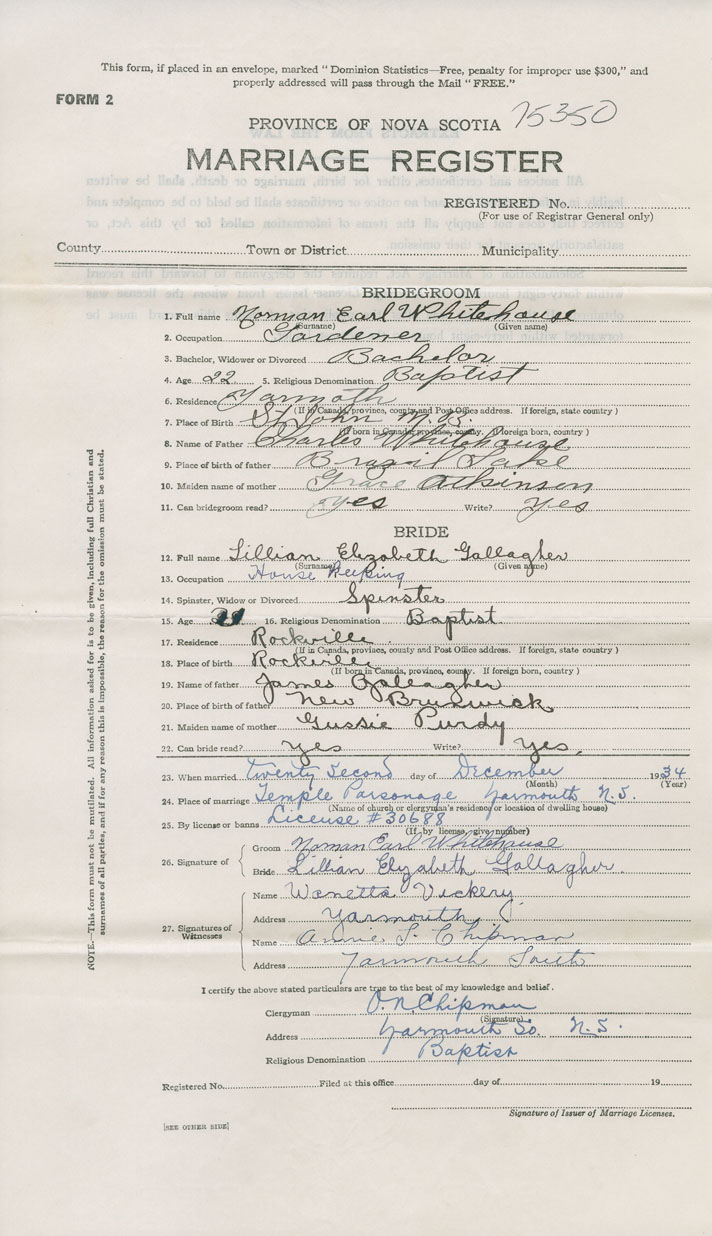 This form, if placed in an envelope, marked “ Dominion Statistics—Free, penalty for improper use $300,” and
properly addressed will pass through the Mail “ FREE.”
FORM 2
PROVINCE OF NOVA SCOTIA 75350
MARRIAGE REGISTER
REGISTERED No.
(For use of Registrar General only)
County Town or District Municipality
BRIDEGROOM
1. Full name Norman Earl Whitehouse
(Surname) (Given name)
2. Occupation Gardener
3. Bachelor, Widower or Divorced Bachelor
4. Age 22 5. Religious Denomination Baptist
6. Residence Yarmoth
(If in Canada, province, county and Post Office address. If foreign, state country )
7. Place of Birth St John N.B.
(If born in Canada, province, county. If foreign born, country )
8. Name of Father Charles Whitehouse
9. Place of birth of father Brazil Lake
10. Maiden name of mother Grace Atkinson
11. Can bridegroom read? yes Write? yes
BRIDE
12. Full name Lillian Elizabeth Gallagher
(Surname) (Given name)
13. Occupation House Keeping
14. Spinster, Widow or Divorced Spinster
15. Age 21 16. Religious Denomination Baptist
17. Residence Rockville
(If in Canada, province, county and Post Office address. If foreign, state country )
18. Place of birth Rockville
(If born in Canada, province, county. If foreign born, country )
19. Name of father James Gallagher
20. Place of birth of father New Brunswick
21. Maiden name of mother Gussie Purdy
22. Can bride read? yes Write? yes.
23. When married twenty second day of December 1934
(Month) (Year)
24. Place of marriage Temple Parsonage Yarmouth N.S.
(Name of church or clergyman's residence or location of dwelling house)
25. By license or banns License #30688
(If by license, give number)
26. Signature of
Groom Norman Earl Whitehouse
Bride Lillian Elizabeth Gallagher.
27. Signatures of Witnesses
Name Wanetta Vickery
Address Yarmouth,
Name Annie S. Chipman
Address Yarmouth South
I certify the above stated particulars are true to the best of my knowledge and belief.
Clergyman O.N. Chipman
(Signature)
Address Yarmouth So. N.S.
Religious Denomination Baptist
Registered No. Filed at this office day of 19
Signature of Issuer of Marriage Licenses.
[SEE OTHER SIDE]
NOTE.—This form must not be mutilated. All information asked for is to be given, including full Christian and
surnames of all parties, and if for any reason this is impossible, the reason for the omission must be stated.